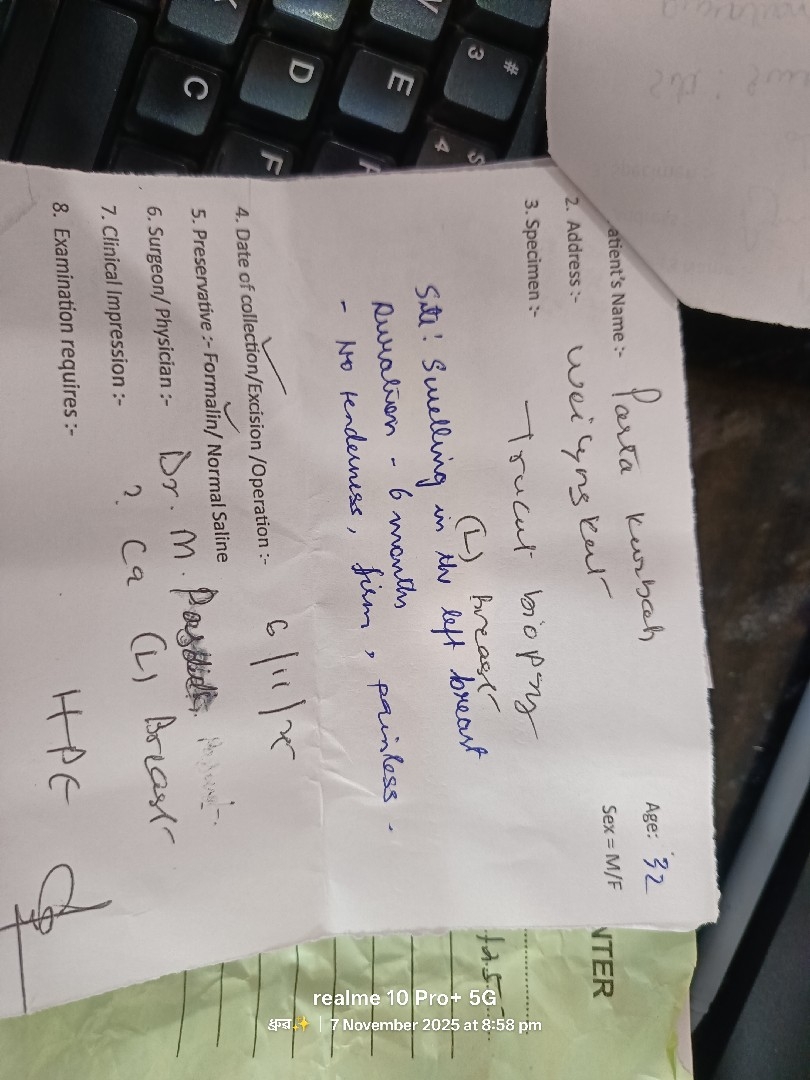 atient's Name :- Parta Kurbah
Age: 32
2. Address :-
Sex = M/F
3. Specimen :- Trucut biopsy
(L) Breast
Site: Swelling in the left breast
Duration - 6 months
- No tenderness, firm, painless.
4. Date of collection/Excision /Operation :- 6/11/
5. Preservative :- Formalin/ Normal Saline
6. Surgeon/ Physician :- Dr. M.
7. Clinical Impression :- ? Ca (L) Breast
8. Examination requires :- HPE
NTER
# 3 4 E D C F
realme 10 Pro+ 5G
7 November 2025 at 8:58 pm